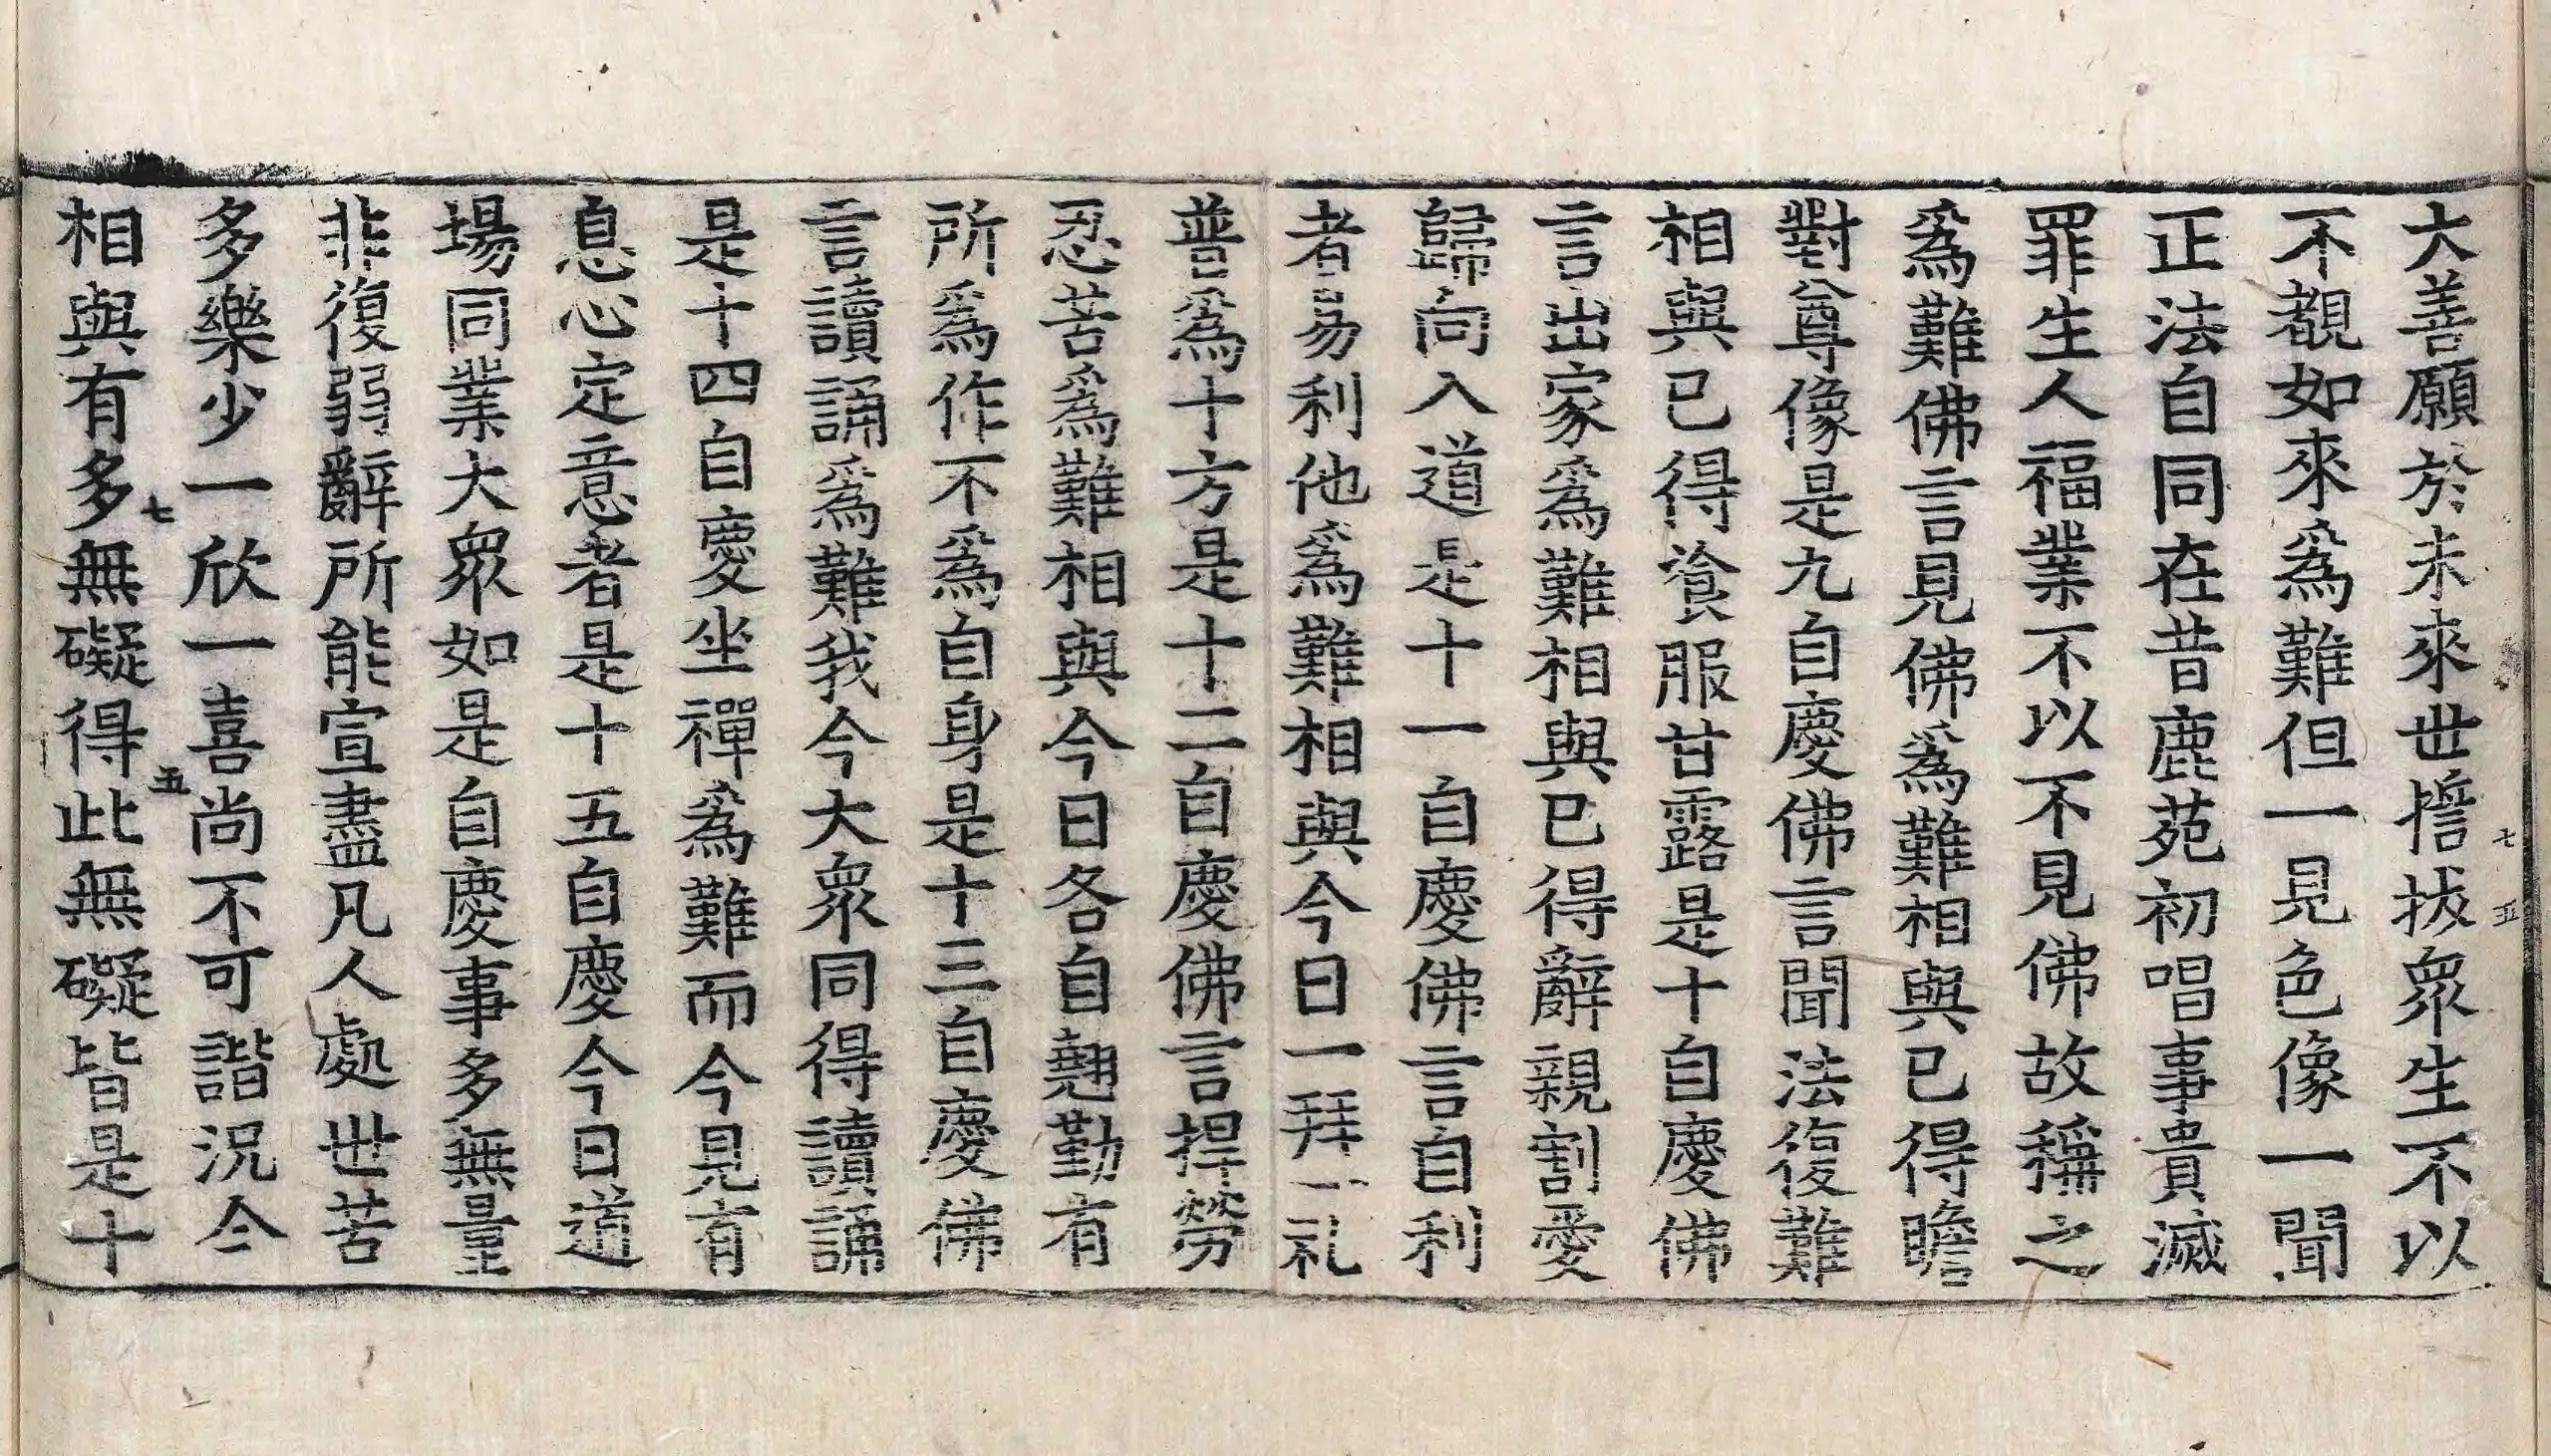 大善願於未來世擔拔衆生不以
不覩如來爲難但一見色像一聞
正法自同在昔鹿苑初唱事貴滅
罪生人福業不以不見佛故稱之
爲難佛言見佛爲難相與已得瞻
對尊像是九自慶佛言聞法復難
相與已得飡服甘露是十自慶佛
言出家爲難相與已得辭親割愛
歸向入道是十一自慶佛言自利
者易利他爲難相與今日一拜一礼
普爲十方是十二自慶佛言捍勞
忍苦爲難相與今日各自翹勤有
所爲作不爲自身是十三自慶佛
言讀誦爲難我今大衆同得讀誦
是十四自慶坐禪爲難而今見有
息心定意者是十五自慶今日道
場同業大衆如是自慶事多無量
非復弱辭所能宣盡凡人處世苦
多樂少一欣一喜尚不可諧況今
相與有多無礙得此無礙皆是十
七
五
七
五